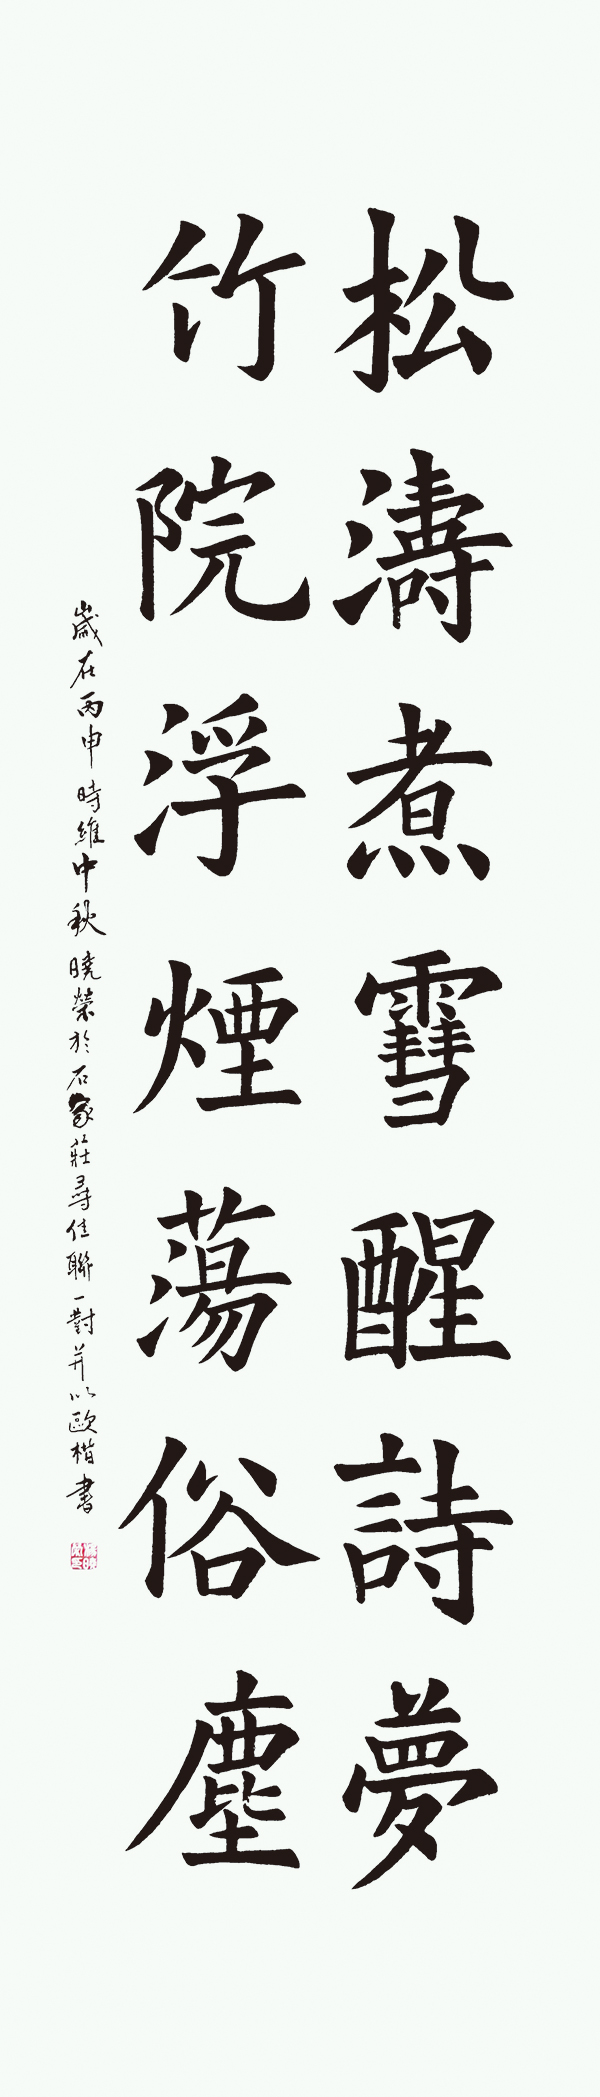 松濤煮雪醒詩夢
竹院浮煙蕩俗塵
歲在丙申時維中秋曉榮於石家莊尋佳聯一對并以歐楷書